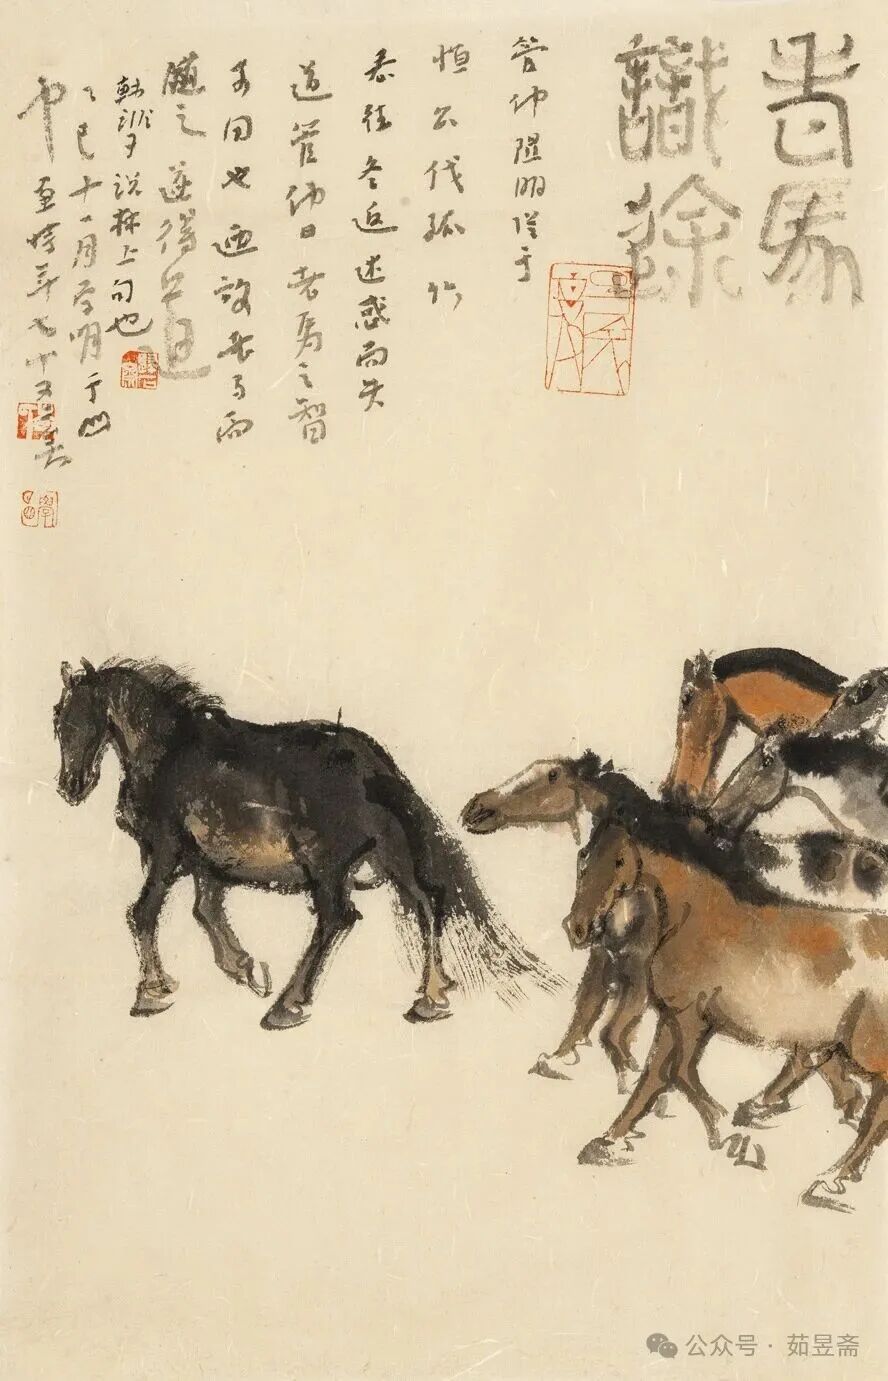 老馬
識途
管仲隰朋從于
恒公伐孤竹
春往冬返迷惑而失
道管仲曰老馬之智
可用也迺放老馬而
隨之遂得道
韓非子說林上句也
乙巳十一月明于凹
中時年七十又
公众号·茹昱斋